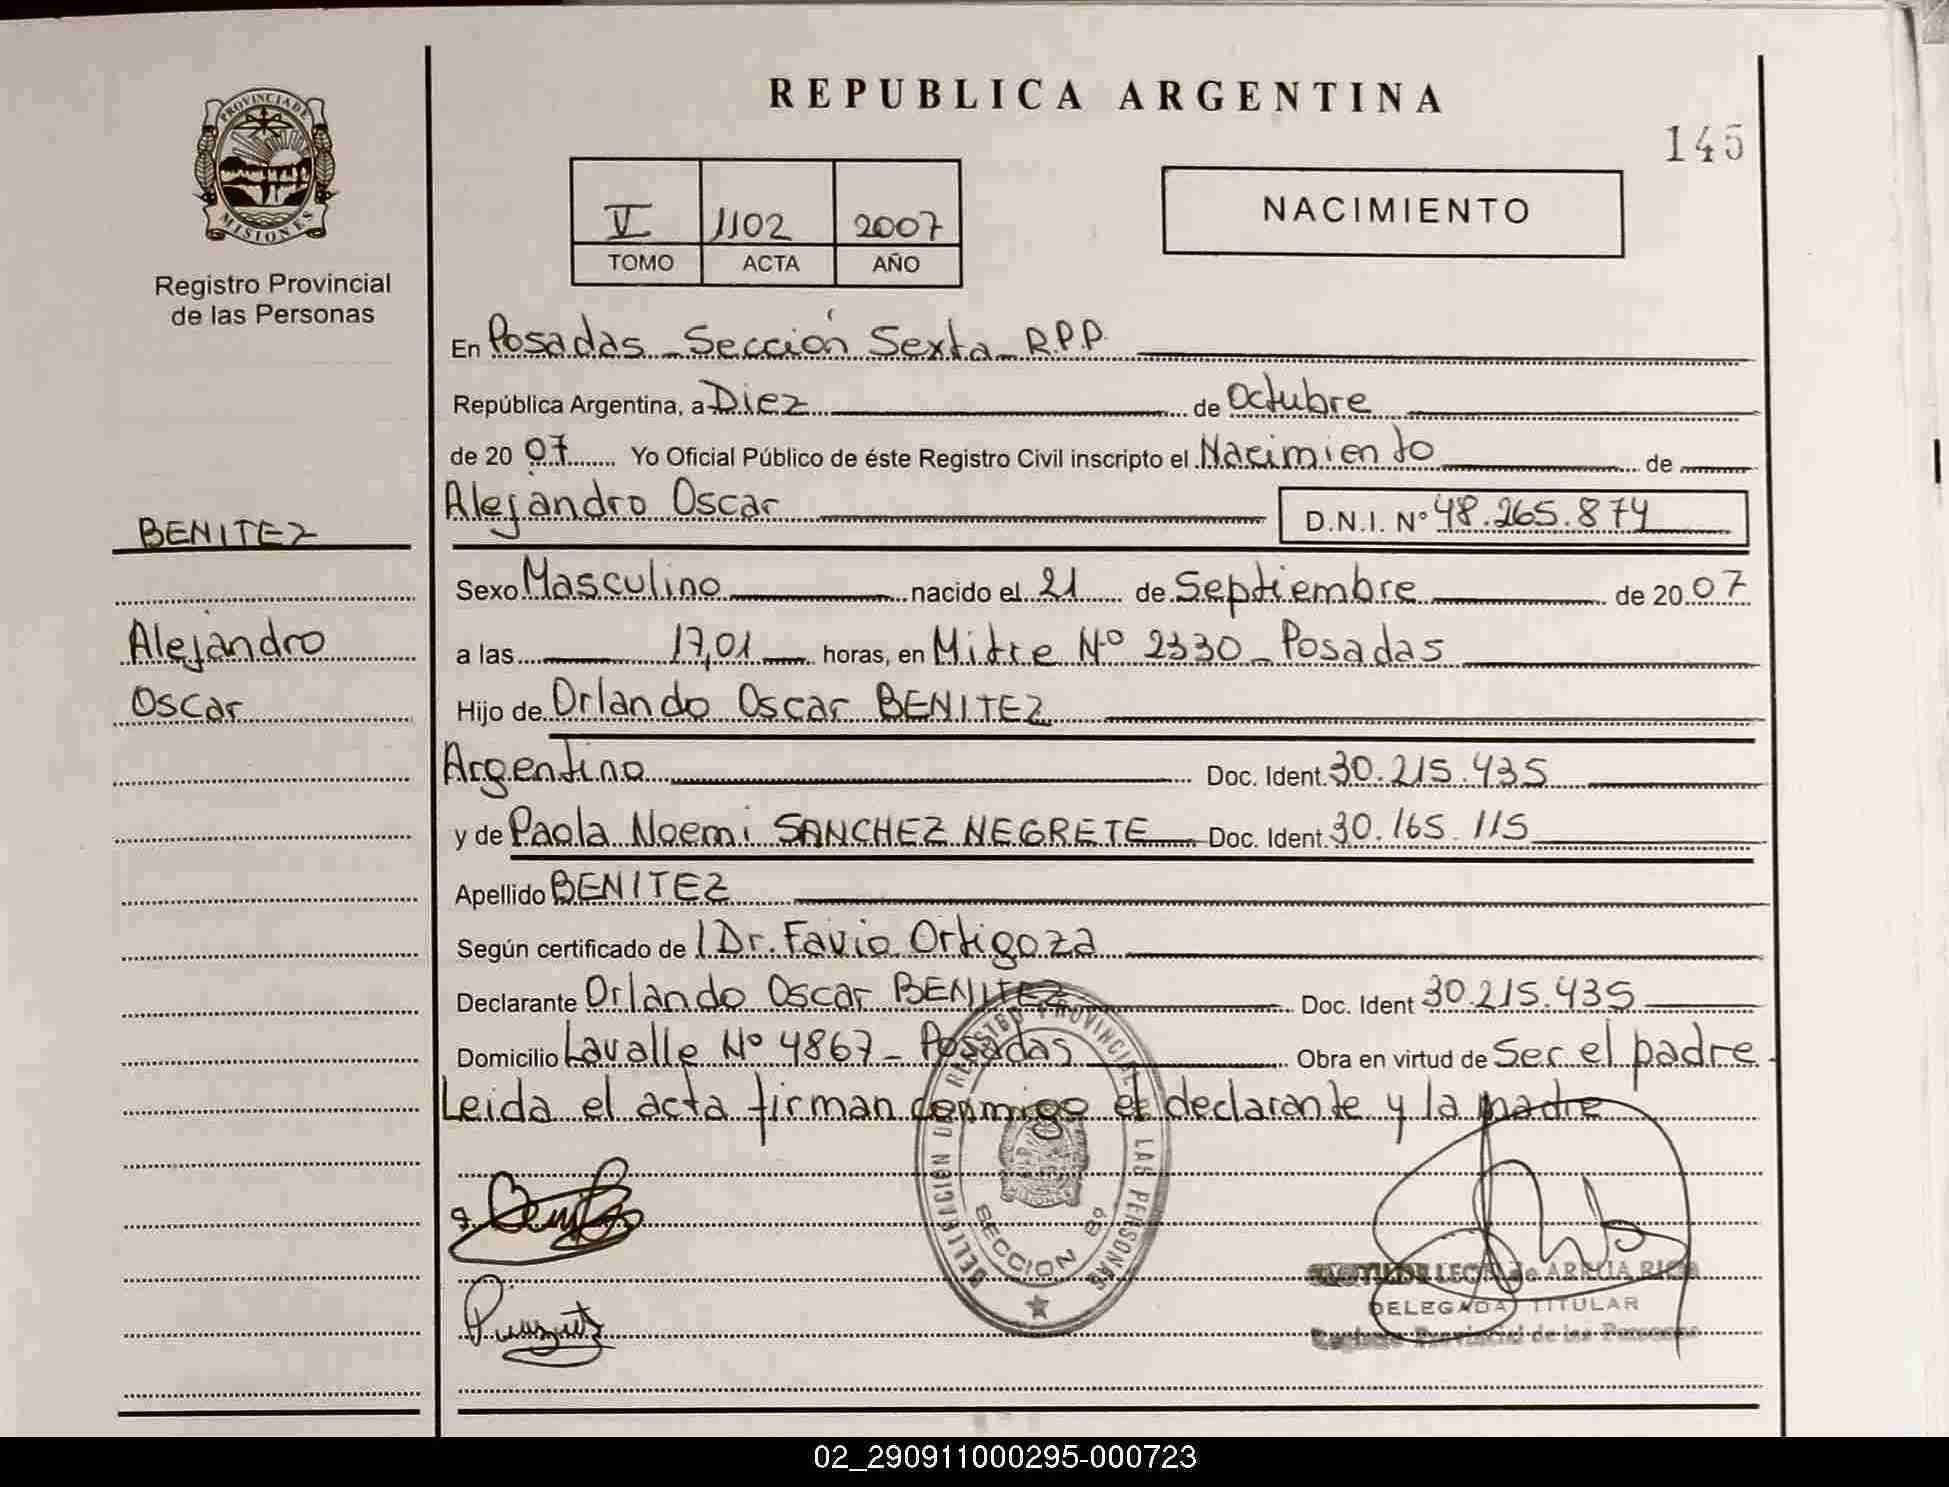 REPUBLICA ARGENTINA
145
PROVINCIA DE
MISIONES
Registro Provincial
de las Personas
V 1102 2007
TOMO ACTA AÑO
NACIMIENTO
En Posadas - Sección Sexta - R.P.P.
República Argentina, a Diez de Octubre
de 2007 Yo Oficial Público de éste Registro Civil inscripto el Nacimiento de
Alejandro Oscar D.N.I. Nº 48.265.874
BENITEZ
Alejandro
Oscar
Sexo Masculino nacido el 21 de Septiembre de 2007
a las 17,01 horas, en Mitre Nº 2330 - Posadas
Hijo de Orlando Oscar BENITEZ
Argentino Doc. Ident. 30.215.435
y de Paola Noemi SANCHEZ NEGRETE Doc. Ident. 30.165.115
Apellido BENITEZ
Según certificado de l Dr. Favio Ortigoza
Declarante Orlando Oscar BENITEZ Doc. Ident 30.215.435
Domicilio Lavalle Nº 4867 - Posadas Obra en virtud de Ser el padre.
Leida el acta firman conmigo el declarante y la madre
REGISTRO PROVINCIAL DE LAS PERSONAS
SECCION
DELEGADA TITULAR
Provincial de las Personas
02_290911000295-000723